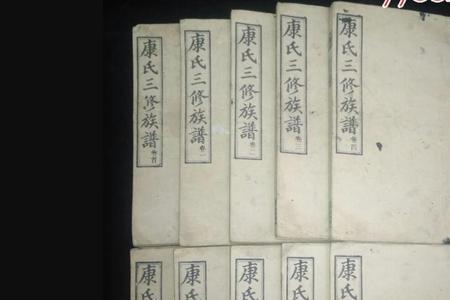 康氏三修族譜 卷首
康氏三修族譜 卷一
康氏三修族譜 卷二
康氏三修族譜 卷三
康氏三修族譜 卷四
康氏
康氏
康氏
康氏
康氏